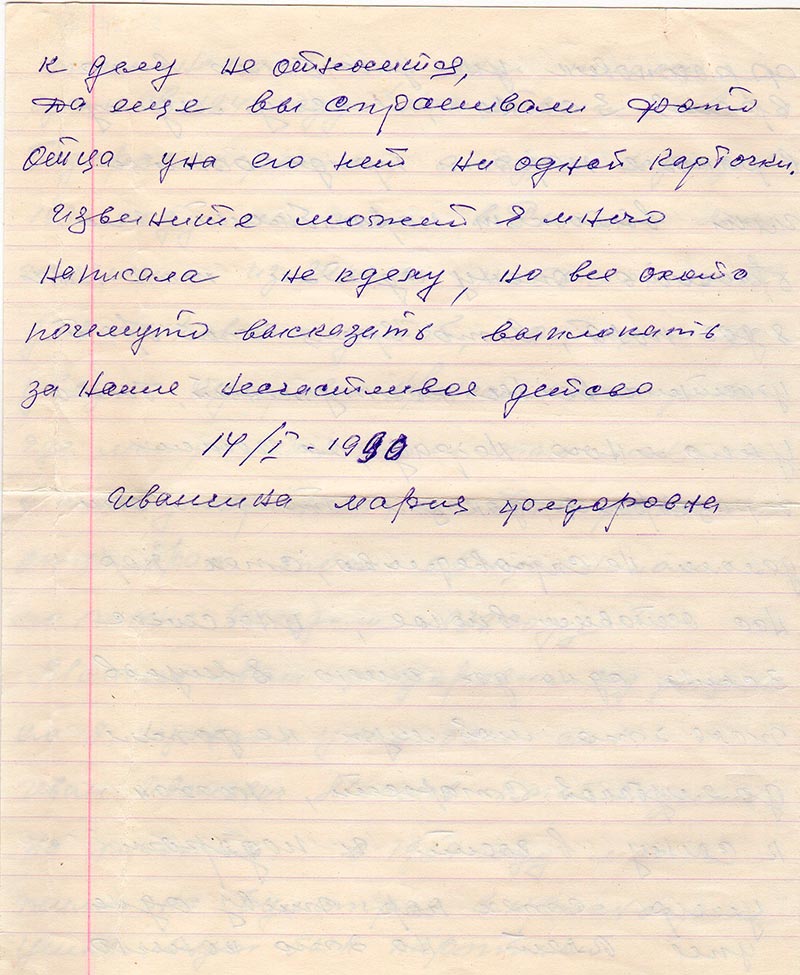 к делу не относится,
да еще вы спрашивали фото
отца у на его нет ни одной карточки.
извените может я много
написала не к делу, но все охото
почемуто высказать выплокать
за наше несчастливое детсво
14/I - 1990
Ивансина мария фёдоровна